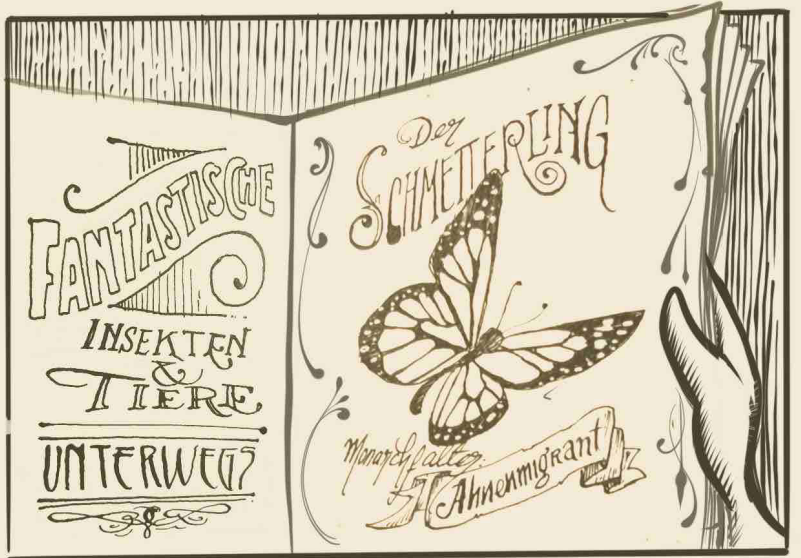 FANTASTISCHE
INSEKTEN
&
TIERE
UNTERWEGS
Der
SCHMETTERLING
Monarchfalter:
Ahnenmigrant